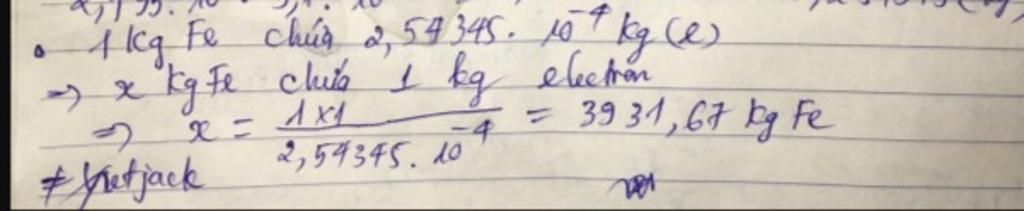 • 1 kg Fe chứa 2,54345. 10⁻⁴ kg (e)
=> x kg Fe chứa 1 kg electron
=> x = 1x1 / 2,54345. 10⁻⁴ = 3931,67 kg Fe
≠ Vietjack